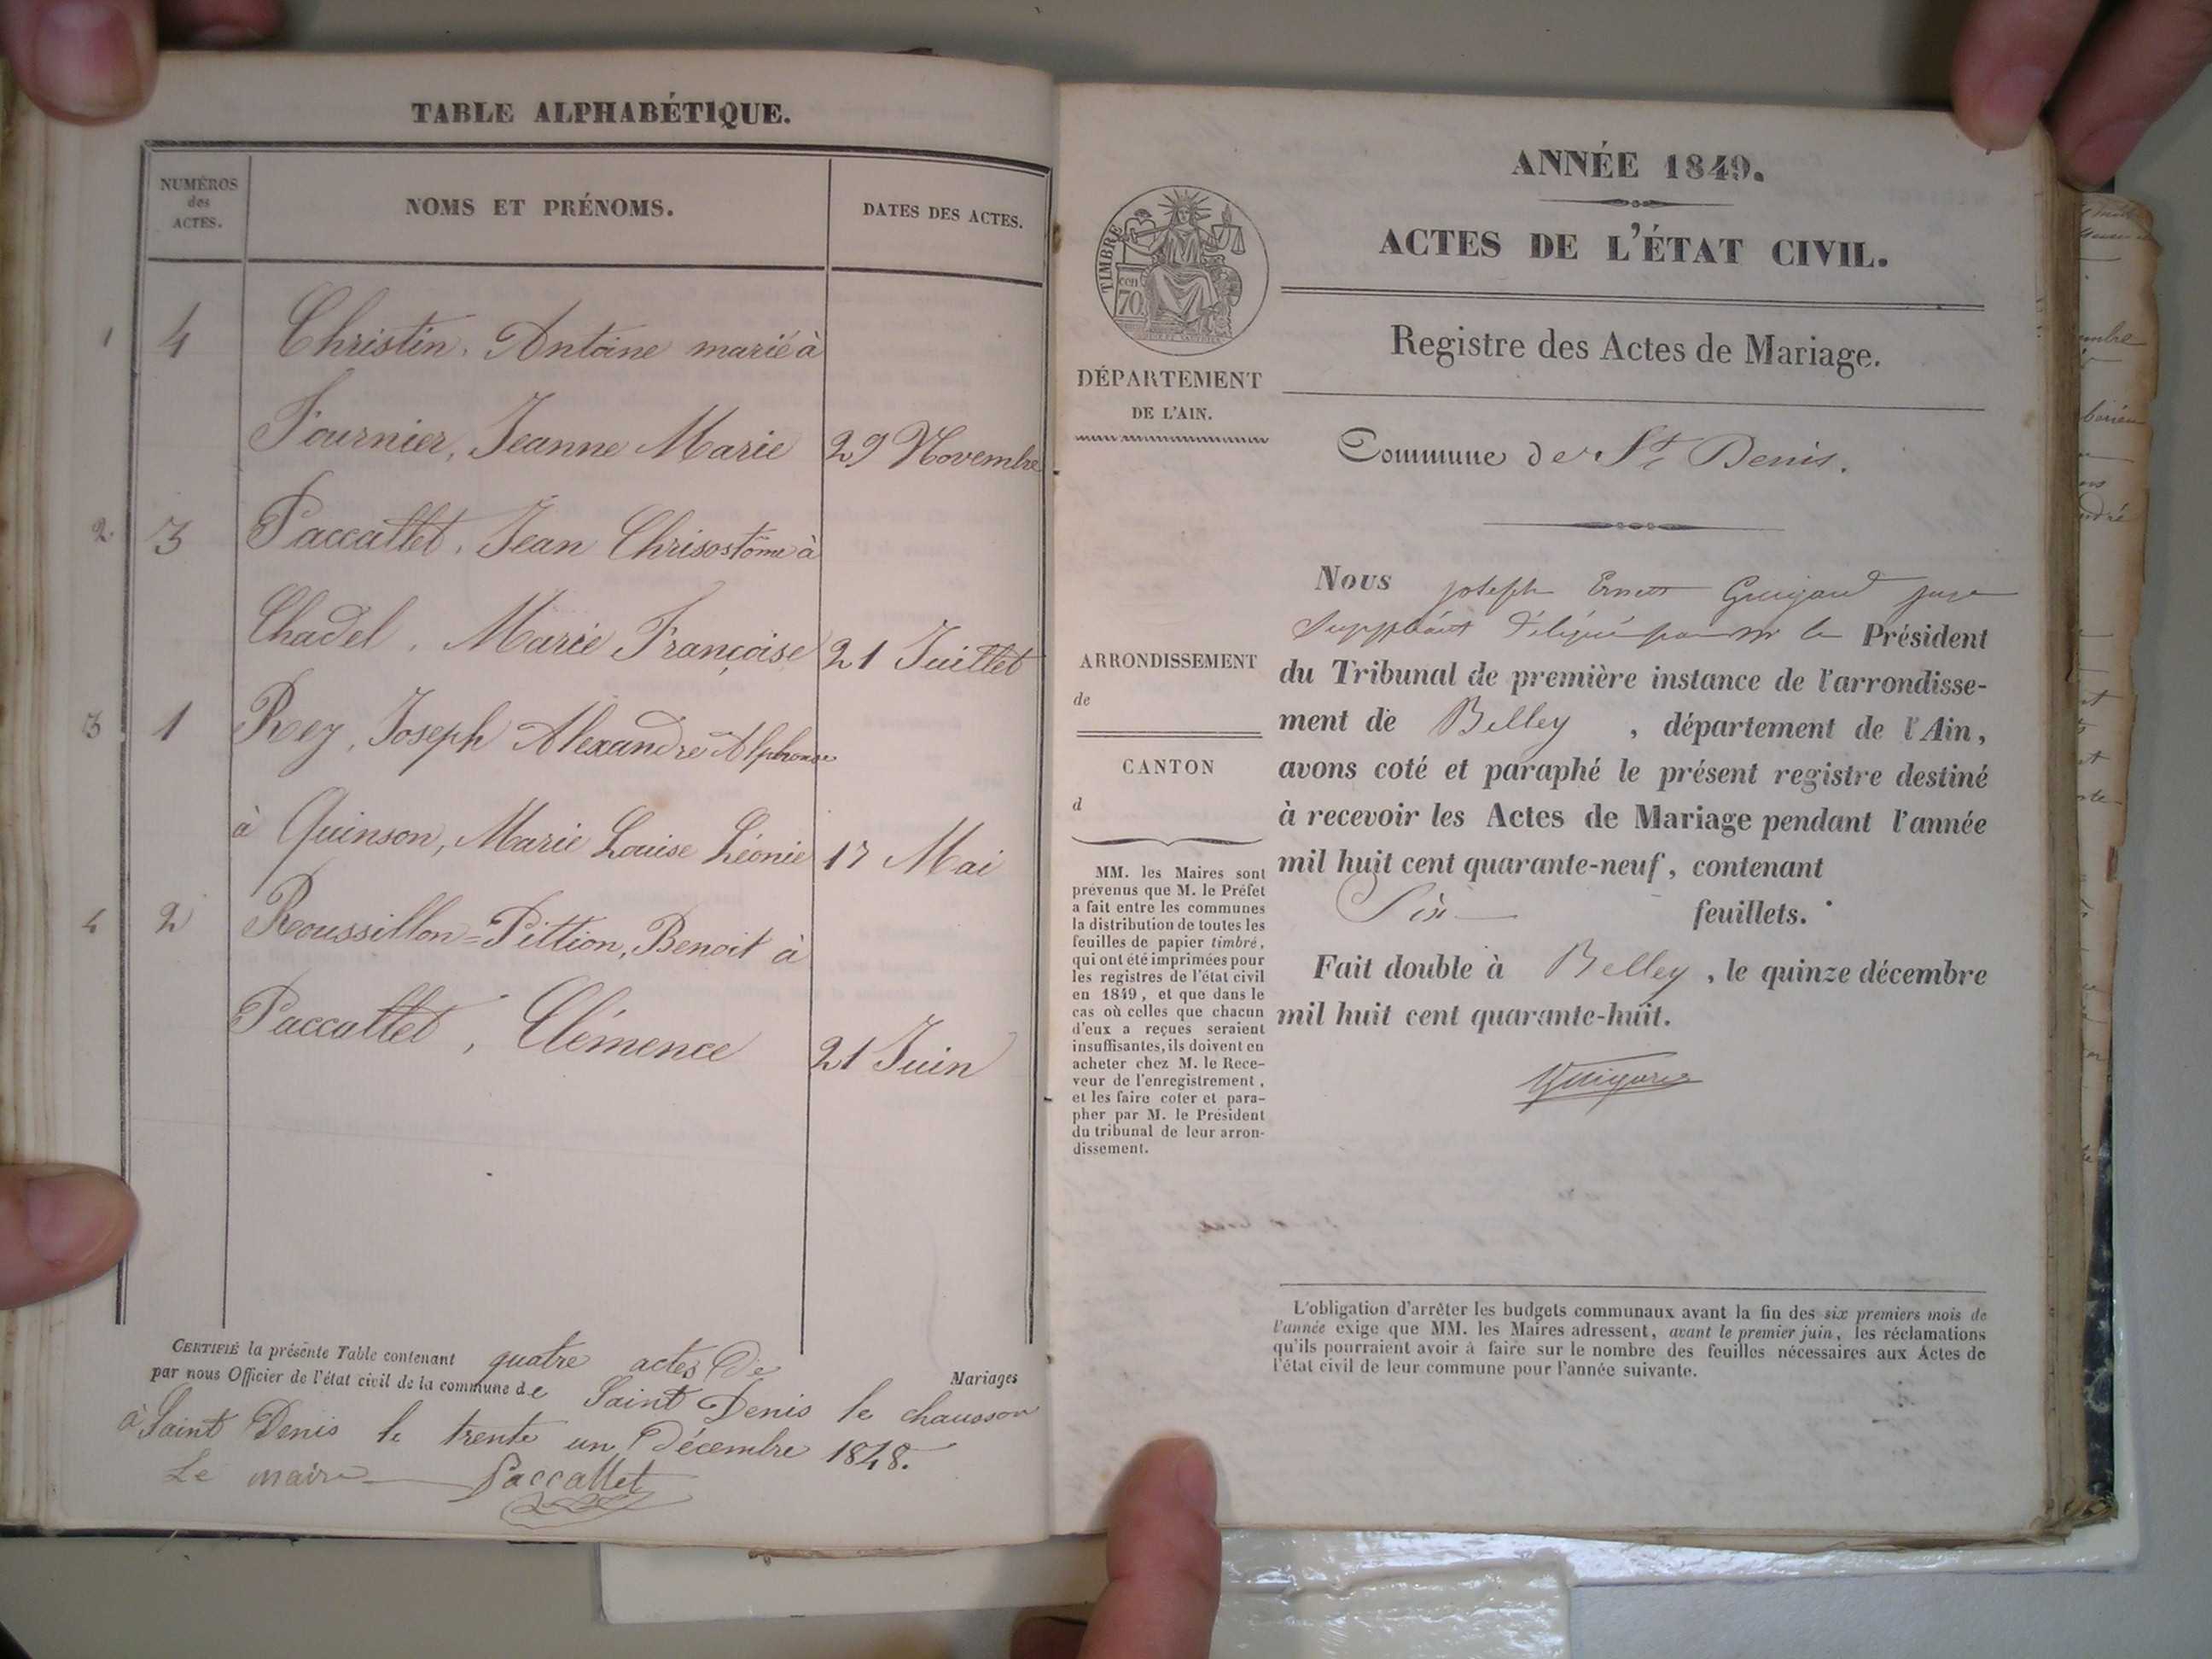 TABLE ALPHABÉTIQUE.
NUMÉROS des ACTES.
NOMS ET PRÉNOMS.
DATES DES ACTES.
1 4 Christin, Antoine marié à
Fournier, Jeanne Marie 29 Novembre
2 3 Paccallet, Jean Chrisostôme à
Chadel, Marie Françoise 21 Juillet
3 1 Rey, Joseph Alexandre Alphonse
à Quinson, Marie Louise Léonie 17 Mai
4 2 Roussillon=Pittion, Benoit à
Paccallet, Clémence 21 Juin
CERTIFIÉ la présente Table contenant quatre actes de Mariages
par nous Officier de l'état civil de la commune de Saint Denis le chausson
à Saint Denis le trente un Décembre 1848.
Le maire Paccallet
ANNÉE 1849.
ACTES DE L'ÉTAT CIVIL.
Registre des Actes de Mariage.
Commune de St Denis.
TIMBRE
cen
70
DÉPARTEMENT
DE L'AIN.
ARRONDISSEMENT
de
CANTON
d
MM. les Maires sont
prévenus que M. le Préfet
a fait entre les communes
la distribution de toutes les
feuilles de papier timbré,
qui ont été imprimées pour
les registres de l'état civil
en 1849, et que dans le
cas où celles que chacun
d'eux a reçues seraient
insuffisantes, ils doivent en
acheter chez M. le Rece-
veur de l'enregistrement,
et les faire coter et para-
pher par M. le Président
du tribunal de leur arron-
dissement.
Nous joseph Ernest Guigard juge
Suppléant délégué par Mr le Président
du Tribunal de première instance de l'arrondisse-
ment de Belley, département de l'Ain,
avons coté et paraphé le présent registre destiné
à recevoir les Actes de Mariage pendant l'année
mil huit cent quarante-neuf, contenant
Six feuillets.
Fait double à Belley, le quinze décembre
mil huit cent quarante-huit.
L'obligation d'arrêter les budgets communaux avant la fin des six premiers mois de
l'année exige que MM. les Maires adressent, avant le premier juin, les réclamations
qu'ils pourraient avoir à faire sur le nombre des feuilles nécessaires aux Actes de
l'état civil de leur commune pour l'année suivante.